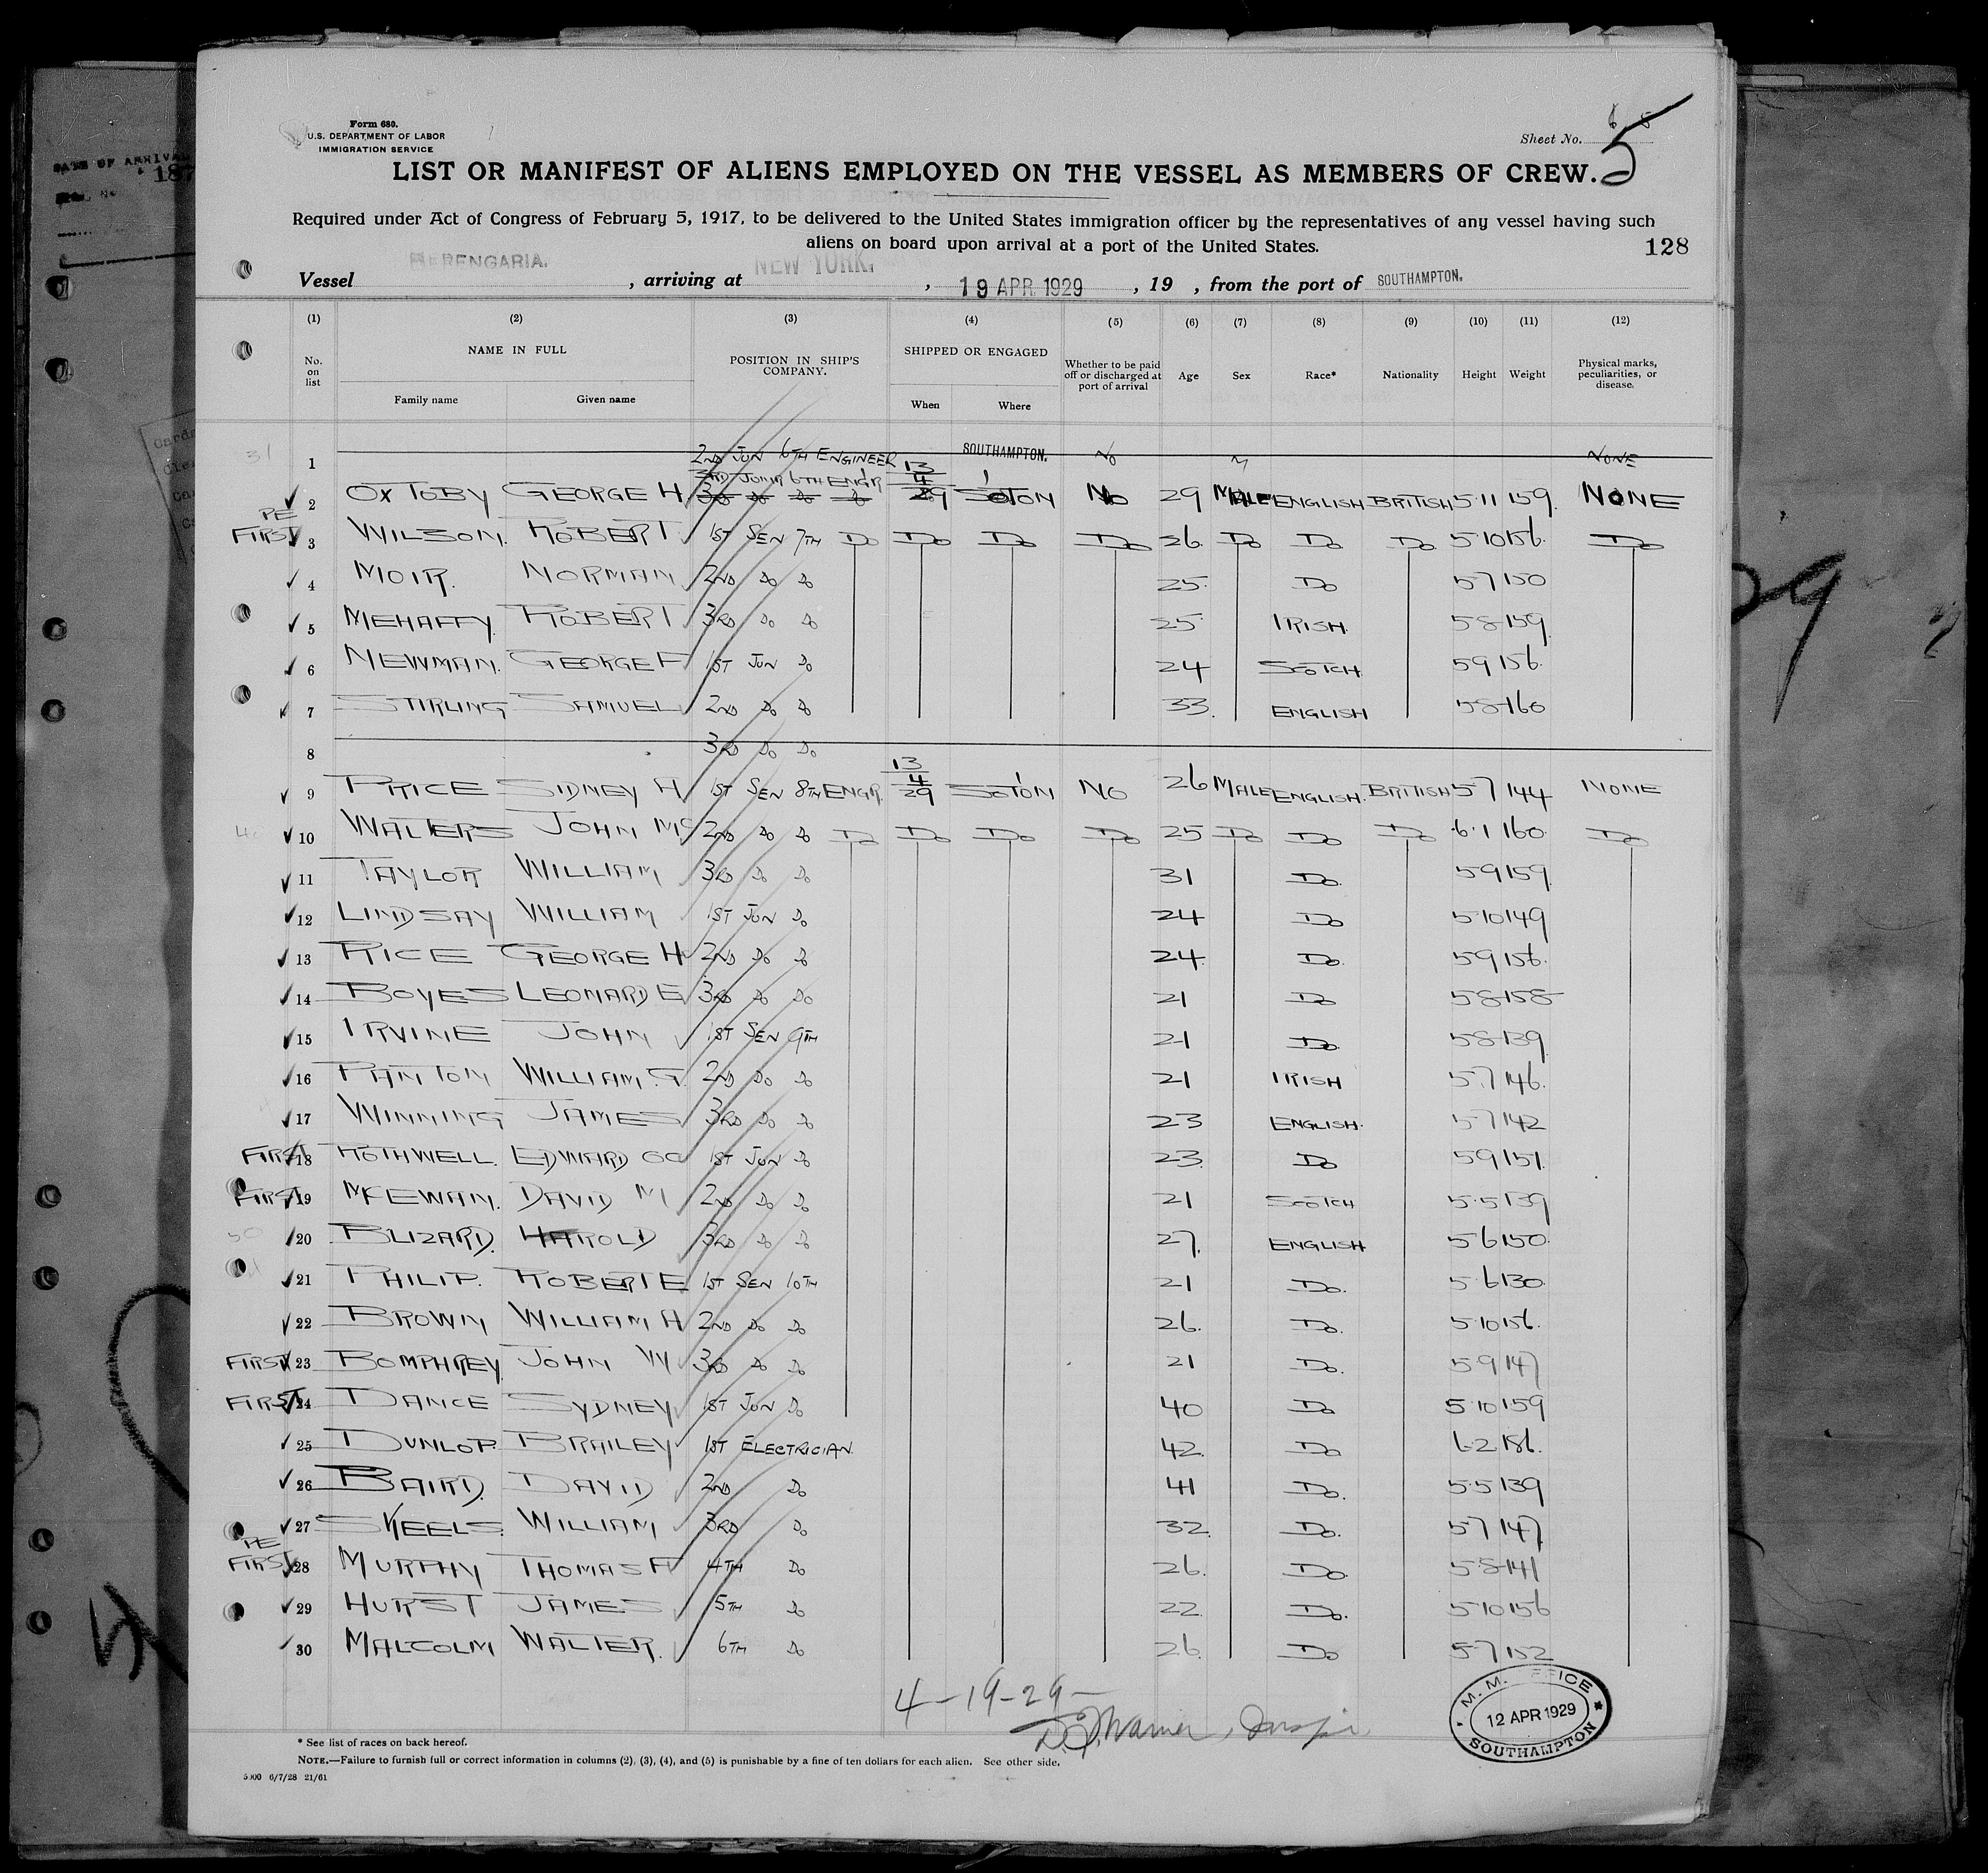 Form 680.
U.S. DEPARTMENT OF LABOR
IMMIGRATION SERVICE
Sheet No. 5
LIST OR MANIFEST OF ALIENS EMPLOYED ON THE VESSEL AS MEMBERS OF CREW.
Required under Act of Congress of February 5, 1917, to be delivered to the United States immigration officer by the representatives of any vessel having such
aliens on board upon arrival at a port of the United States.
128
Vessel BERENGARIA. , arriving at NEW YORK. , 19 APR 1929 , 19 , from the port of SOUTHAMPTON.
(1) (2) (3) (4) (5) (6) (7) (8) (9) (10) (11) (12)
No. on list NAME IN FULL Family name Given name POSITION IN SHIP'S COMPANY. SHIPPED OR ENGAGED When Where Whether to be paid off or discharged at port of arrival Age Sex Race* Nationality Height Weight Physical marks, peculiarities, or disease.
1 2ND JUN 6TH ENGINEER SOUTHAMPTON. NO M NONE
2 OXTOBY GEORGE H 3RD JUNR 6TH ENGR 13/4/29 SOTON NO 29 MALE ENGLISH BRITISH 5 11 159 NONE
PE FIRST 3 WILSON. ROBERT. 1ST SEN 7TH DO DO DO DO 26 DO DO DO 5 10 156 DO
4 MOIR. NORMAN 2ND DO DO 25 DO 5 7 150
5 MEHAFFY. ROBERT 3RD DO DO 25 IRISH. 5 8 159
6 NEWMAN. GEORGE F 1ST JUN DO 24 SCOTCH 5 9 156
7 STIRLING SAMUEL 2ND DO DO 33 ENGLISH 5 8 160
8 3RD DO DO
9 PRICE SIDNEY A 1ST SEN 8TH ENGR. 13/4/29 SOTON NO 26 MALE ENGLISH. BRITISH 5 7 144 NONE
10 WALTERS JOHN MC 2ND DO DO DO DO DO DO 25 DO DO DO 6 1 160 DO
11 TAYLOR WILLIAM 3RD DO DO 31 DO 5 9 159
12 LINDSAY WILLIAM 1ST JUN DO 24 DO 5 10 149
13 RICE GEORGE H 2ND DO DO 24 DO 5 9 156
14 BOYES LEONARD E 3RD DO DO 21 DO 5 8 158
15 IRVINE JOHN 1ST SEN 9TH 21 DO 5 8 139
16 PANTON WILLIAM. G. 2ND DO DO 21 IRISH 5 7 146
17 WINNING JAMES 3RD DO DO 23 ENGLISH. 5 7 142
FIRST 18 ROTHWELL. EDWARD 1ST JUN DO 23 DO 5 9 151
FIRST 19 MCEWAN. DAVID M 2ND DO DO 21 SCOTCH 5 5 139
20 BLIZARD. HAROLD 3RD DO DO 27 ENGLISH 5 6 150
21 PHILIP. ROBERT E 1ST SEN 10TH 21 DO 5 6 130
22 BROWN WILLIAM A 2ND DO DO 26 DO 5 10 156
FIRST 23 BOMPHREY JOHN W 3RD DO DO 21 DO 5 9 147
FIRST 24 DANCE SYDNEY 1ST JUN DO 40 DO 5 10 159
25 DUNLOP. BRAILEY 1ST ELECTRICIAN. 42 DO 6 2 186
26 BAIRD. DAVID 2ND DO 41 DO. 5 5 139
27 SKEELS. WILLIAM 3RD DO 32 DO. 5 7 147
PE FIRST 28 MURPHY THOMAS 4TH DO 26 DO 5 8 141
29 HURST JAMES 5TH DO 22 DO. 5 10 156
30 MALCOLM WALTER. 6TH DO 26 DO 5 7 152
4-19-29-
Warner, Inspr.
M. M. OFFICE
12 APR 1929
SOUTHAMPTON
* See list of races on back hereof.
NOTE.—Failure to furnish full or correct information in columns (2), (3), (4), and (5) is punishable by a fine of ten dollars for each alien. See other side.
5000 6/7/28 21/61